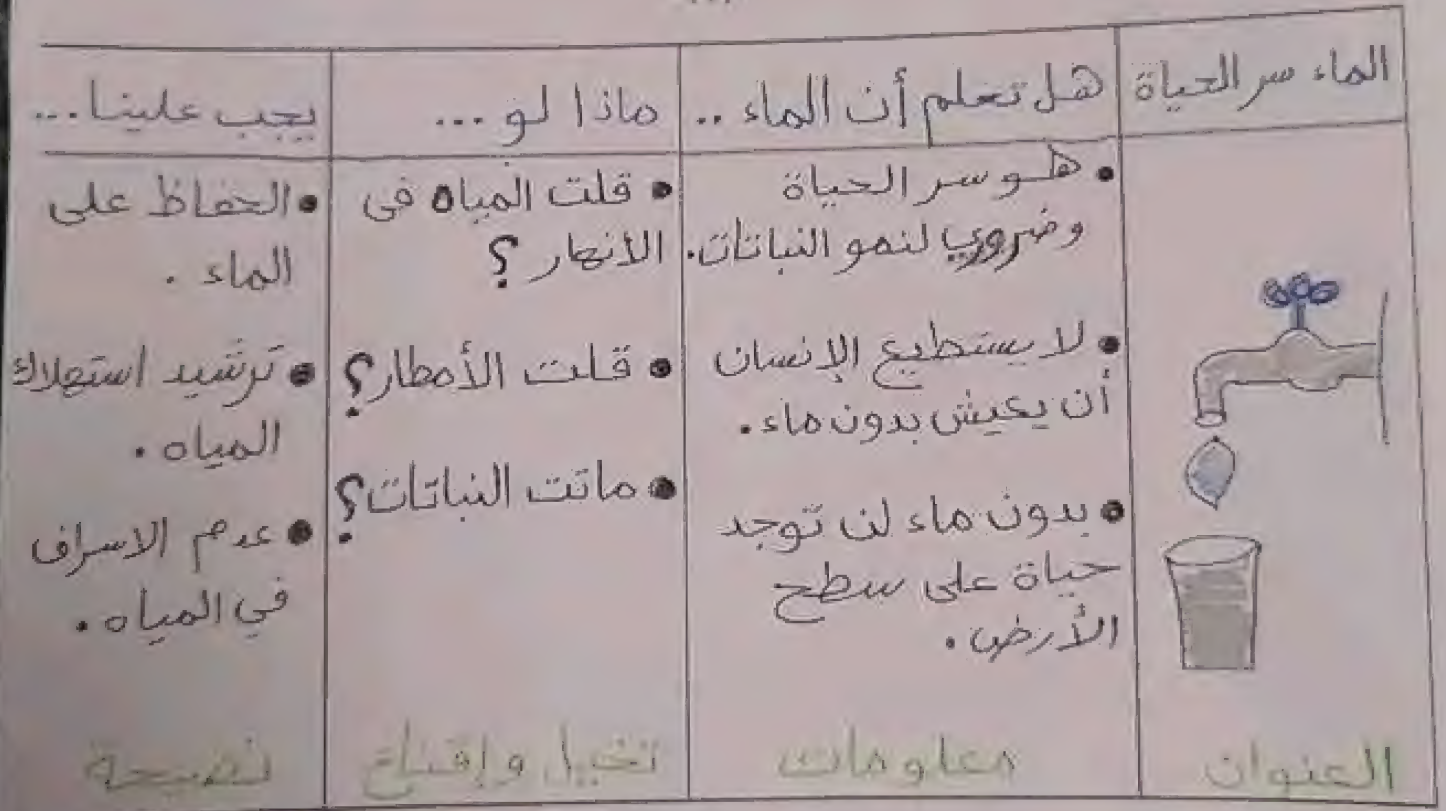 الماء سر الحياة
هل تعلم أن الماء ..
ماذا لو ...
يجب علينا ...
• هو سر الحياة
وضروري لنمو النباتات.
• لا يستطيع الإنسان
أن يعيش بدون ماء.
• بدون ماء لن توجد
حياة على سطح
الأرض.
• قلت المياه في
الأنهار؟
• قلت الأمطار؟
• ماتت النباتات؟
• الحفاظ على
الماء .
• ترشيد استهلاك
المياه .
• عدم الاسراف
في المياه .
العنوان
معلومات
تخيل وإقناع
نصيحة